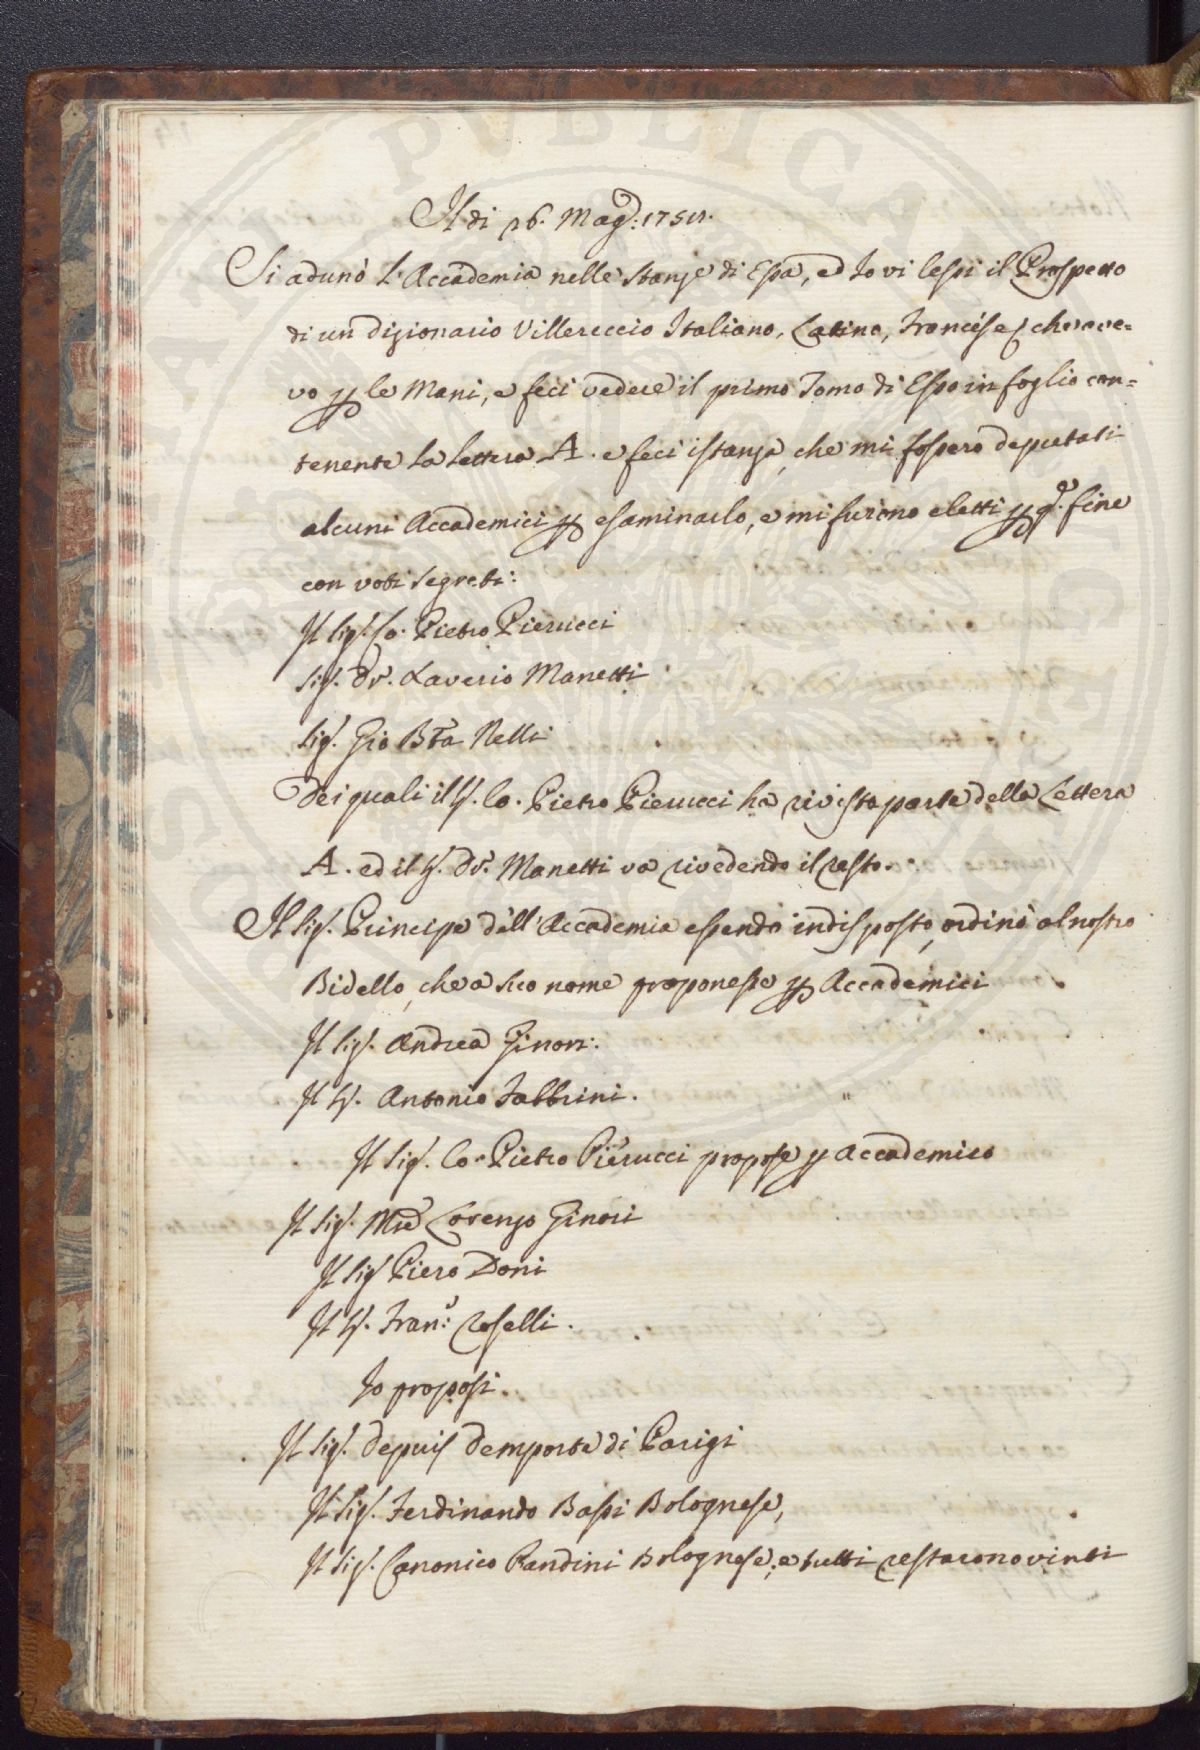 Il di 26. Magg: 1751.
Si adunò l'Accademia nelle stanze di Essa, ed Io vi lessi il Prospetto
di un dizionario Villereccio Italiano, Latino, Francese, che ave=
vo p le Mani, e feci vedere il primo Tomo di Esso in foglio con=
tenente la lettera A. e feci istanza, che mi fossero deputati
alcuni Accademici p esaminarlo, e mi furono eletti p q.o fine
con voti segreti:
Il Sig. Co. Pietro Pierucci
Sig. Dr. Xaverio Manetti
Sig. Gio Bta Nelli
Dei quali il S. Co. Pietro Pierucci ha rivista parte della Lettera
A. ed il S. Dr. Manetti va rivedendo il resto.
Il Sig. Principe dell'Accademia essendo indisposto, ordinò al nostro
Bidello, che a suo nome proponesse p Accademici
Il Sig. Andrea Ginori.
Il S. Antonio Fabbrini.
Il Sig. Co. Pietro Pierucci propose p Accademico
Il Sig. Mse Lorenzo Ginori
Il Sig Piero Doni
Il S. Fran: Roselli.
Io proposi.
Il Sig. depuis demporte di Parigi
Il Sig. Ferdinando Bassi Bolognese,
Il Sig. Canonico Bandini Bolognese, e tutti restarono vinti
PUBLICA